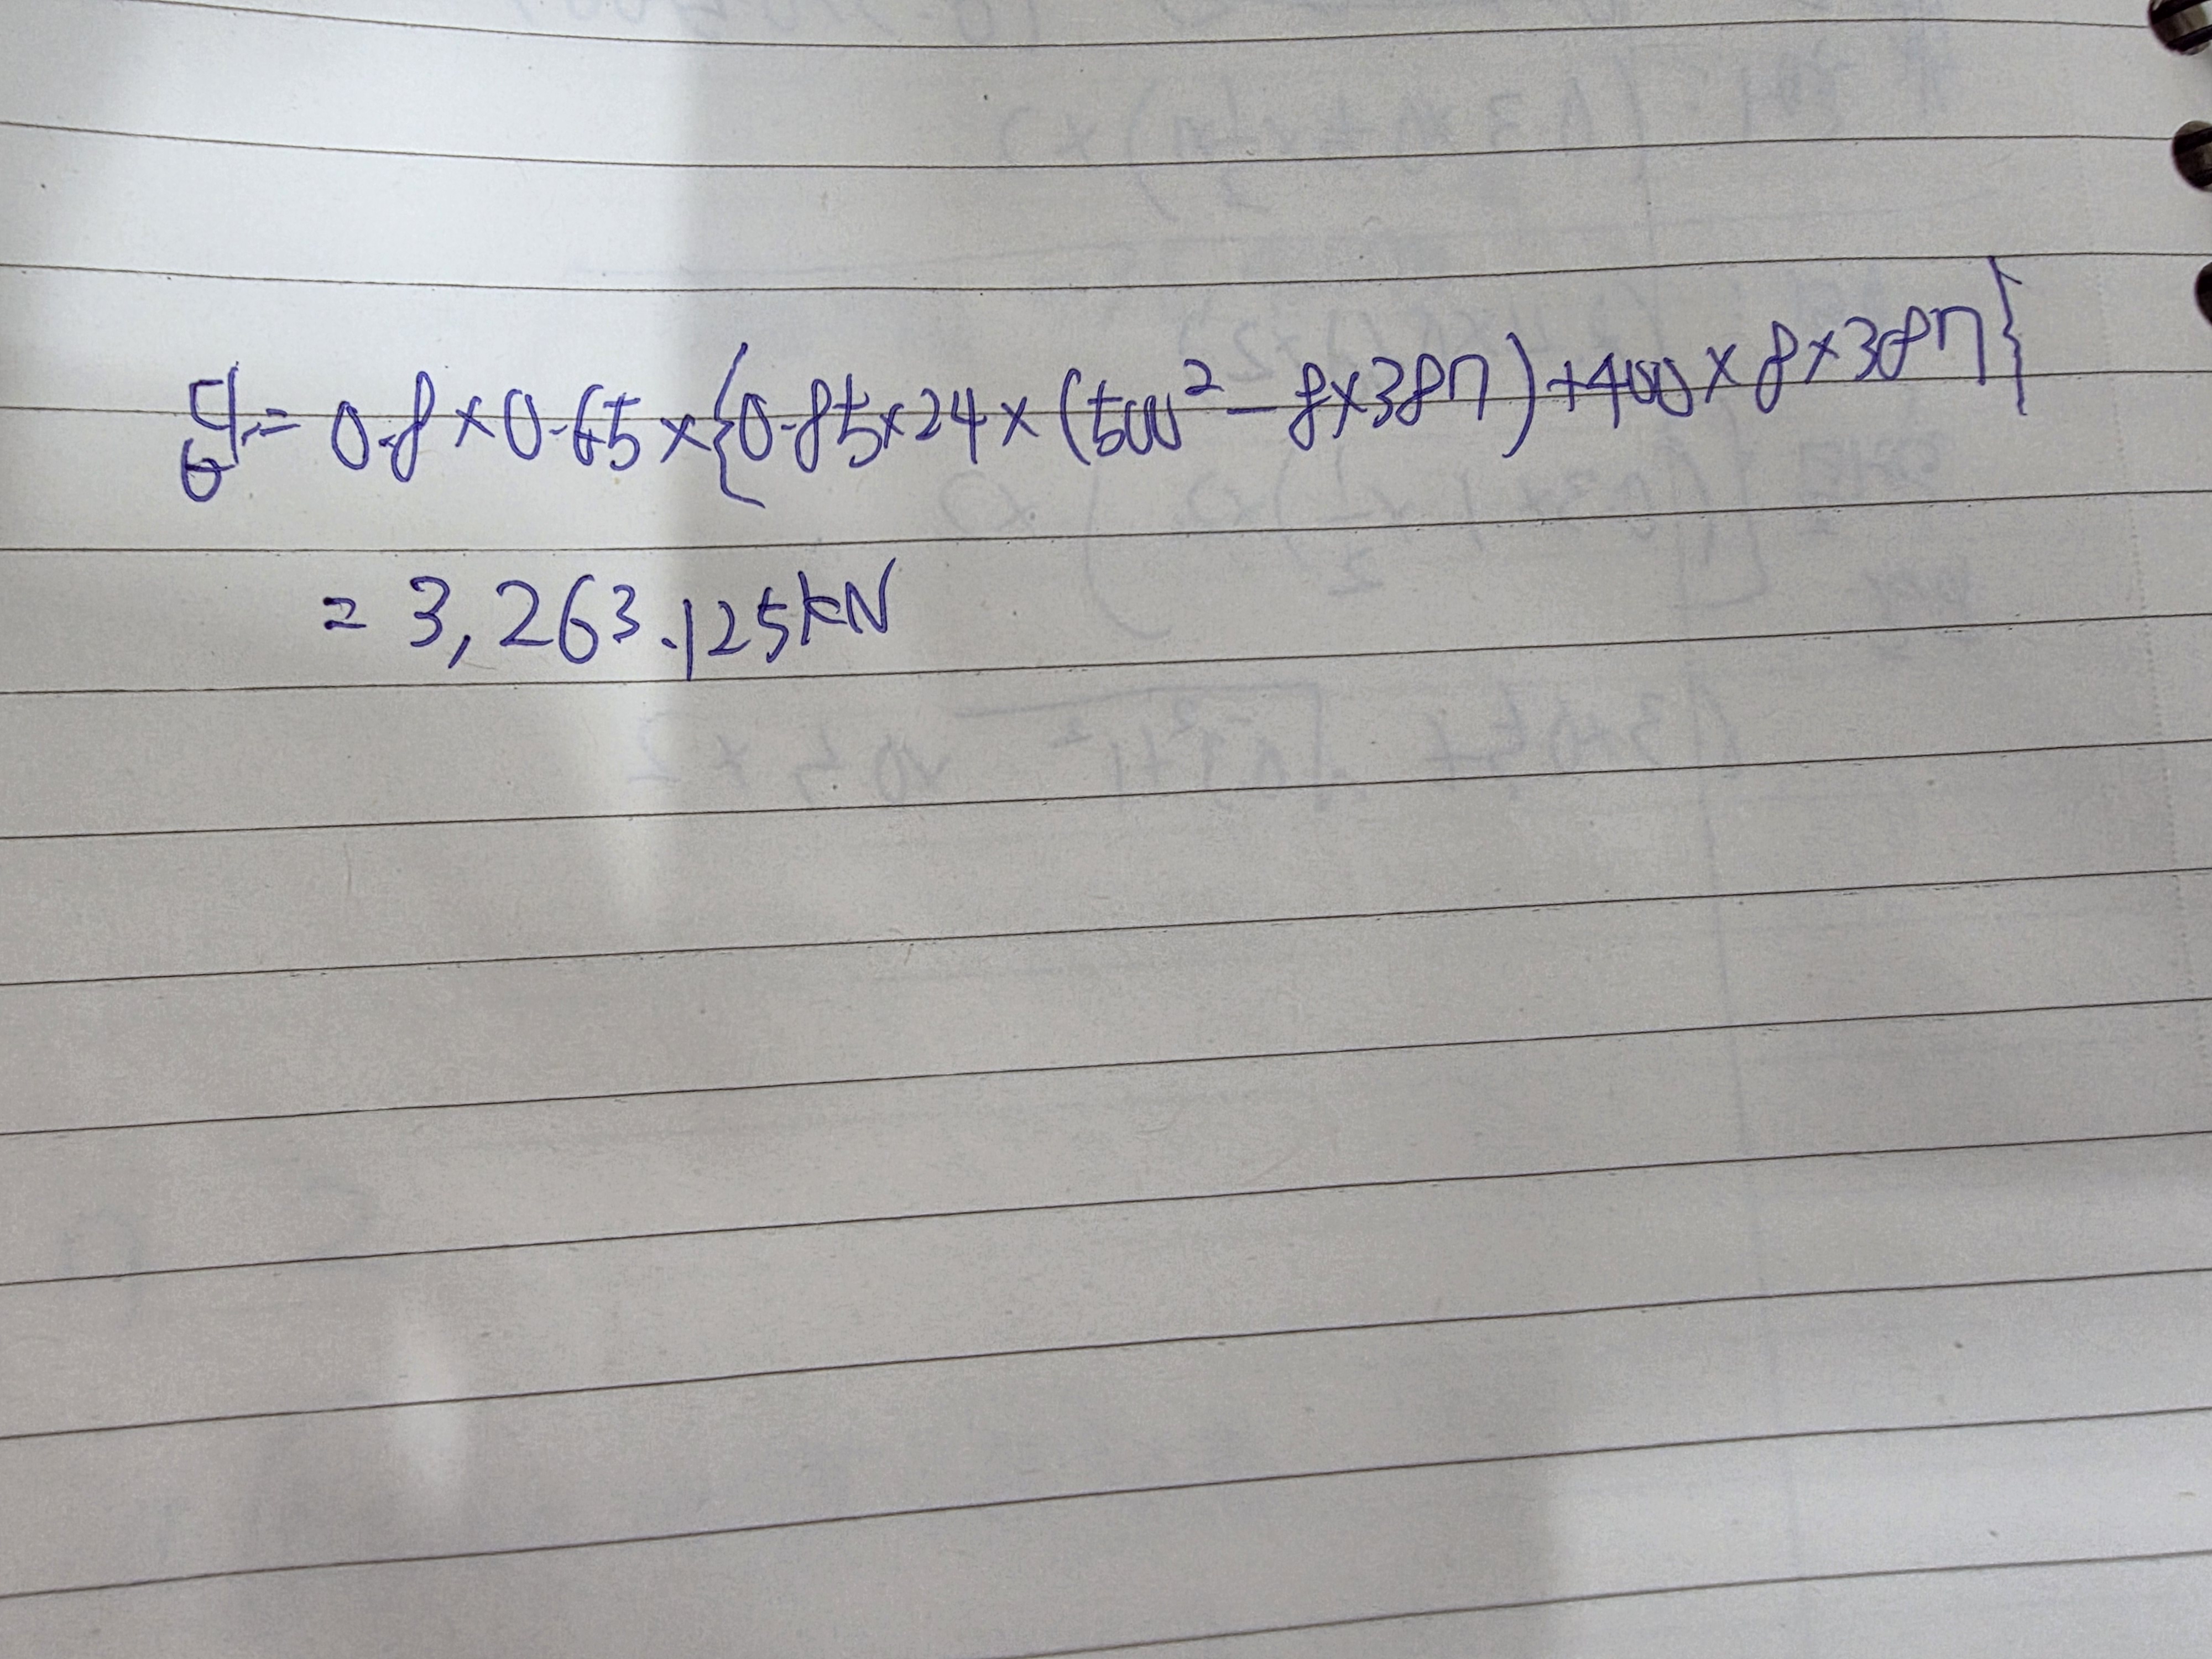 답 = 0.8×0.65×{0.85×24×(500²-8×387)+400×8×387}
= 3,263.125kN